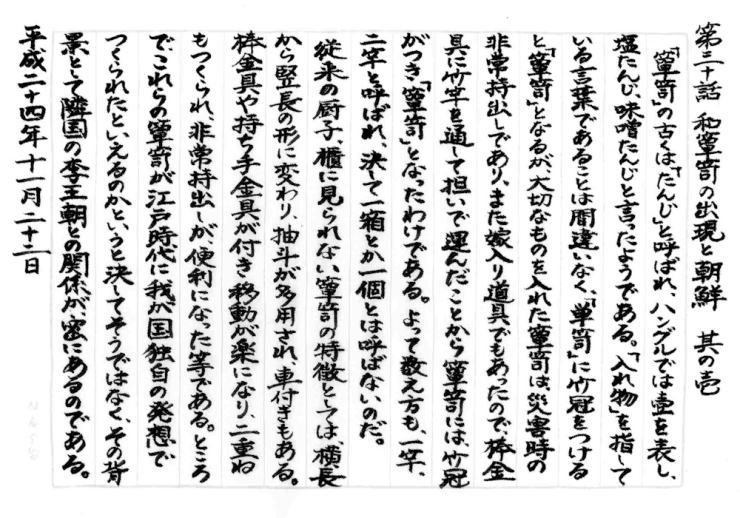 第三十話 和簞笥の出現と朝鮮 其の壱
「簞笥」の古くは「たんじ」と呼ばれ、ハングルでは壺を表し、
塩たんじ、味噌たんじと言ったようである。「入れ物」を指して
いる言葉であることは間違いなく、「単笥」に竹冠をつける
と「簞笥」となるが、大切なものを入れた簞笥は、災害時の
非常持出しであり、また嫁入り道具でもあったので棒金
具に竹竿を通して担いで運んだことから簞笥には、竹冠
がつき「簞笥」となったわけである。よって数え方も、一竿、
二竿と呼ばれ、決して一箱とか一個とは呼ばないのだ。
従来の厨子、櫃に見られない簞笥の特徴としては、横長
から竪長の形に変わり、抽斗が多用され、車付きもある。
棒金具や持ち手金具が付き、移動が楽になり、二重ね
もつくられ、非常持出しが、便利になった等である。ところ
で、これらの簞笥が江戸時代に我が国独自の発想で
つくられたといえるのかというと決してそうではなく、その背
景として隣国の李王朝との関係が、密にあるのである。
平成二十四年十一月二十二日